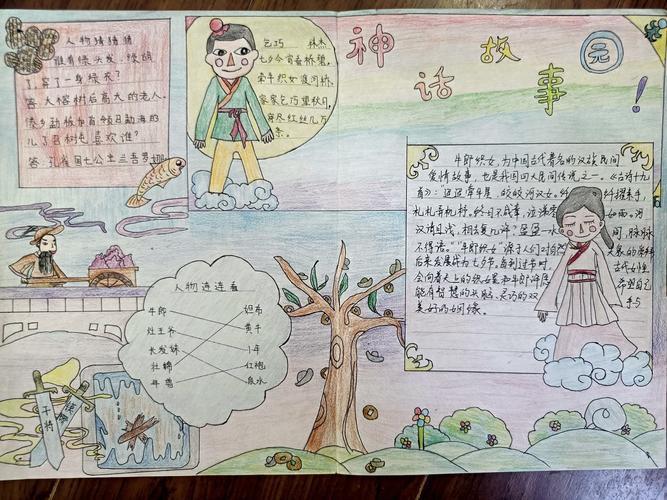 神话故事园！
人物猜猜猜
谁有绿头发,绿胡
了,穿了一身绿衣?
答.大榕树后高大的老人.
傣乡勐板加首领召勐海的
儿子召树屯喜欢谁?
答.孔雀国七公主兰吾罗娜
乞巧 林杰
七夕今宵看碧霄,
牵牛织女渡河桥.
家家乞巧望秋月,
穿尽红丝几万
条.
人物连连看
牛郎 织布
灶王爷 黄牛
长发妹 1年
壮锦 红袍
年兽 泉水
干将
莫邪
牛郎织女,为中国古代著名的汉族民间
爱情故事,也是我国四大民间传说之一.《古诗十九
首》:"迢迢牵牛星 皎皎河汉女.纤纤擢素手,
札札弄机杼.终日不成章,泣涕零如雨.河
汉清且浅,相去复几许?盈盈一水间,脉脉
不得语."牛郎织女"源于人们对自然天象的崇拜
后来发展成为七夕节.每到过节时,古代女性
会向着天上的织女星和牛郎许愿,希望自己
能有智慧的头脑、灵巧的双手与
美好的姻缘.